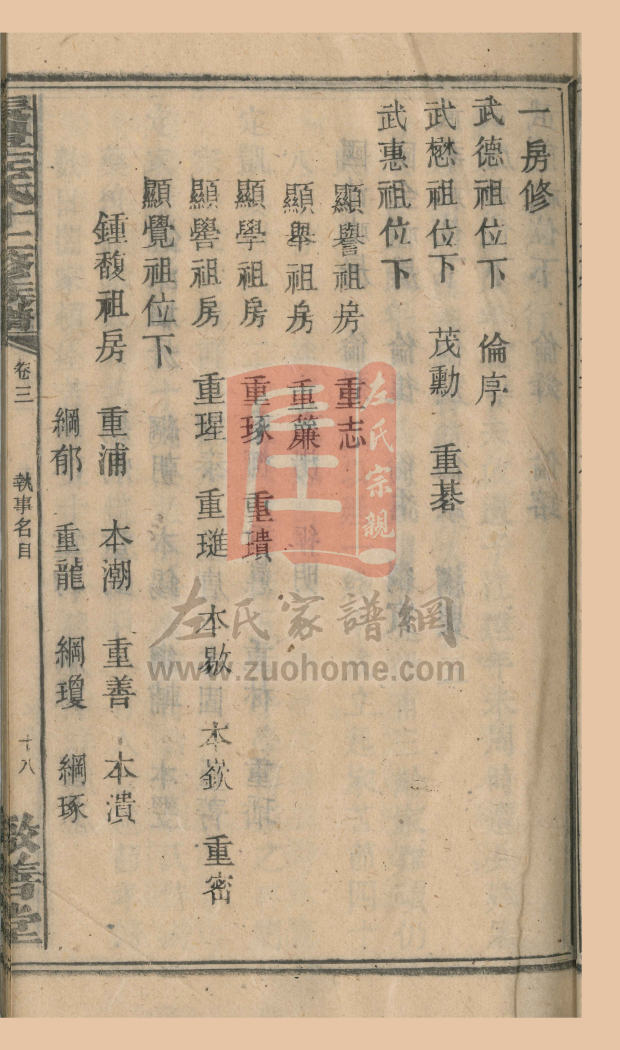 一房修
武德祖位下 倫序
武懋祖位下 茂勳 重碁
武惠祖位下
顯譽祖房 重志
顯舉祖房 重簾
顯學祖房 重琢 重璝
顯嚳祖房 重瑆 重璡 本歇 本嶔 重密
顯覺祖位下
鍾馥祖房 重浦 本潮 重善 本潰
綱郁 重龍 綱瓊 綱琢
十二修族譜
卷三
執事名目
十八
敦善堂
左氏宗親
左氏家譜網
www.zuohome.com